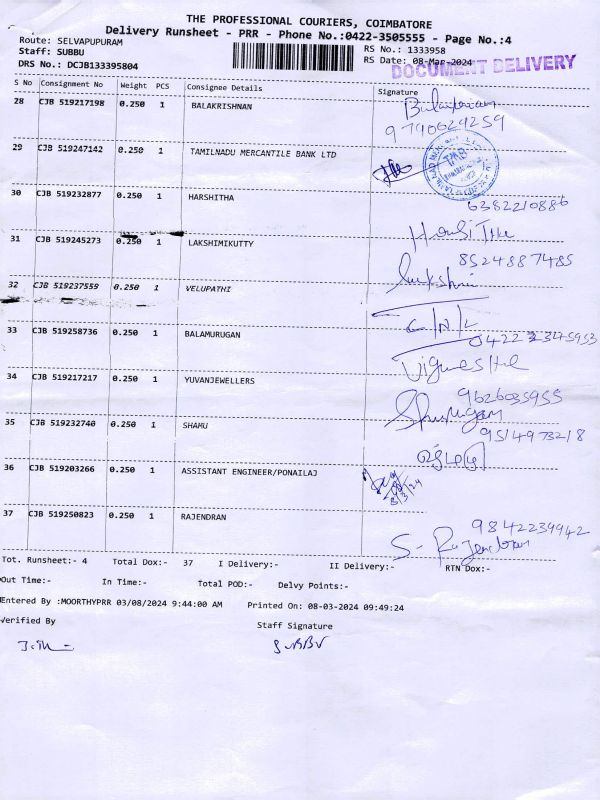 THE PROFESSIONAL COURIERS, COIMBATORE
Delivery Runsheet - PRR - Phone No.:0422-3505555 - Page No.:4
Route: SELVAPUPURAM
RS No.: 1333958
Staff: SUBBU
RS Date: 08-Mar-2024
DOCUMENT DELIVERY
DRS No.: DCJB133395804
S No Consignment No Weight PCS Consignee Details Signature
28 CJB 519217198 0.250 1 BALAKRISHNAN
9790629259
29 CJB 519247142 0.250 1 TAMILNADU MERCANTILE BANK LTD
TMB
30 CJB 519232877 0.250 1 HARSHITHA
6382210886
31 CJB 519245273 0.250 1 LAKSHIMIKUTTY
8524887485
32 CJB 519237559 0.250 1 VELUPATHI
C/N/L
33 CJB 519258736 0.250 1 BALAMURUGAN
34 CJB 519217217 0.250 1 YUVANJEWELLERS
9626035955
35 CJB 519232740 0.250 1 SHAMU
9514973218
36 CJB 519203266 0.250 1 ASSISTANT ENGINEER/PONAILAJ
8/3/24
37 CJB 519250823 0.250 1 RAJENDRAN
9842239942
S- Rajendran
Tot. Runsheet:- 4 Total Dox:- 37 I Delivery:- II Delivery:- RTN Dox:-
Out Time:- In Time:- Total POD:- Delvy Points:-
Entered By :MOORTHYPRR 03/08/2024 9:44:00 AM Printed On: 08-03-2024 09:49:24
Verified By Staff Signature
SUBBU